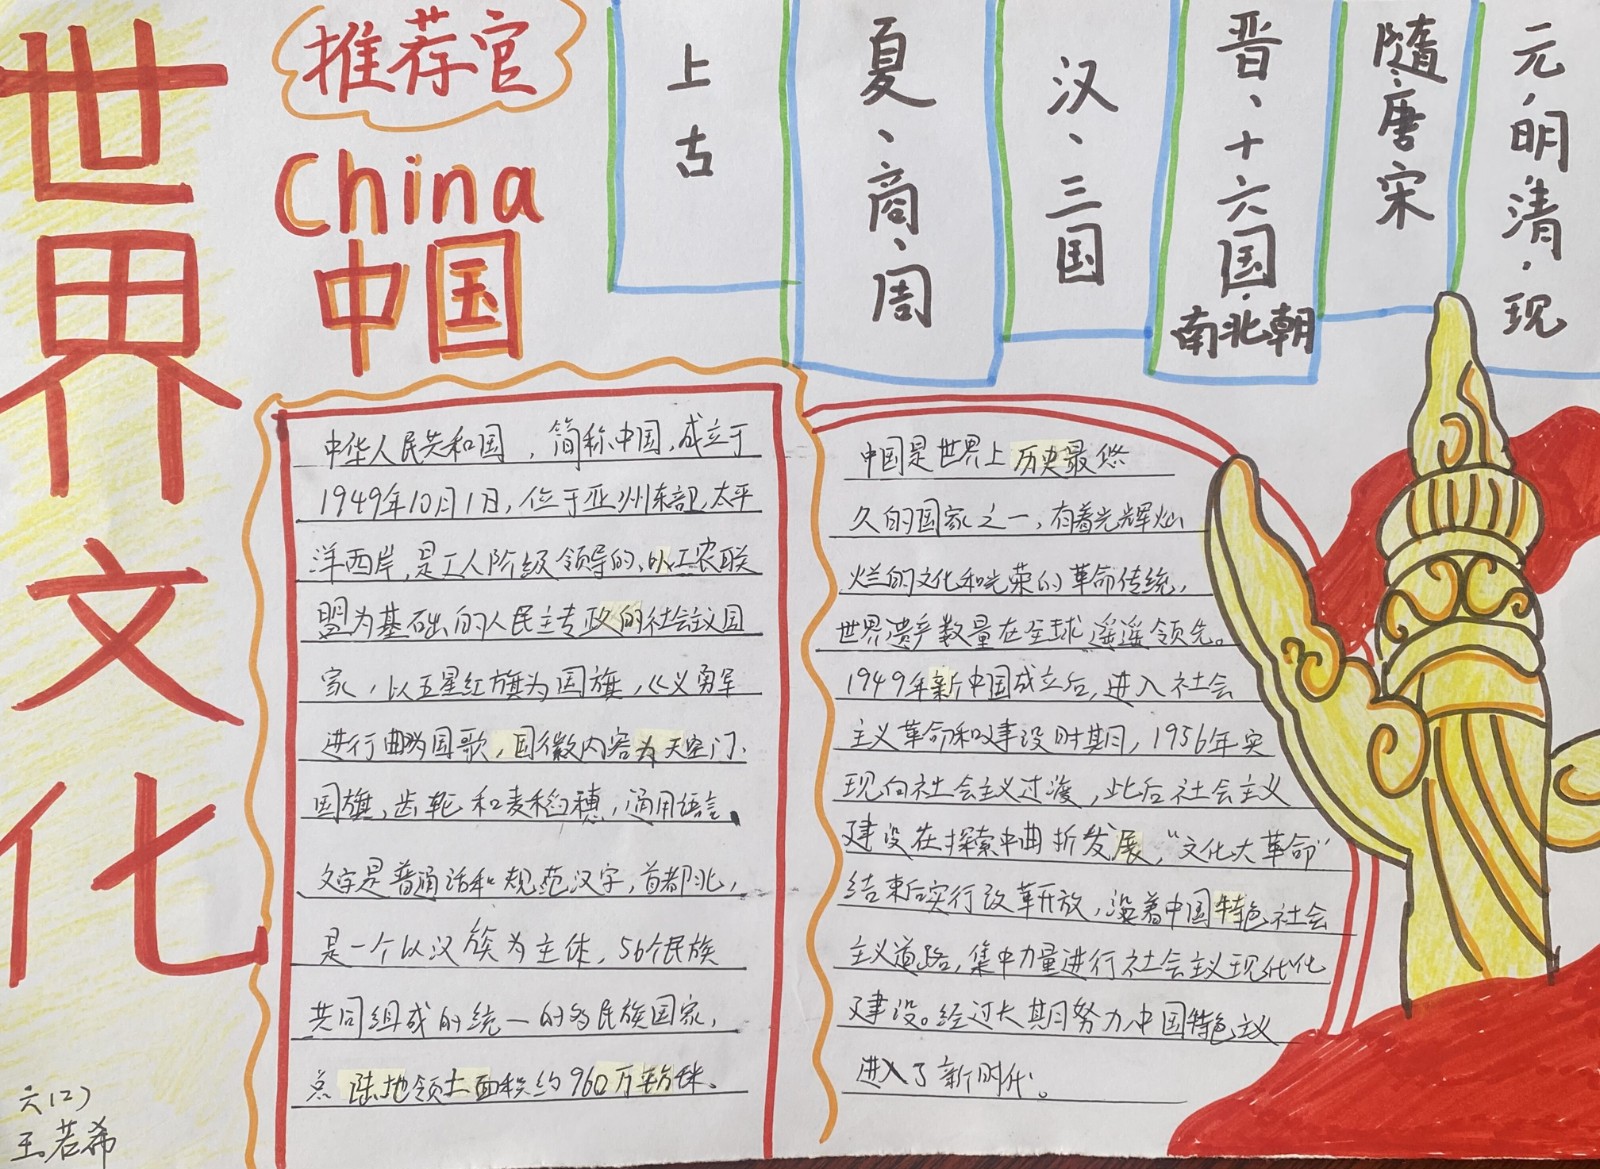 世界文化
推荐官
China
中国
上古
夏、商、周
汉、三国
晋、十六国、
南北朝
隨、唐宋
元,明,清,现
中华人民共和国，简称中国,成立于
1949年10月1日,位于亚州东部,太平
洋西岸,是工人阶级领导的,以工农联
盟为基础的人民主专政的社会主义国
家,以五星红旗为国旗,《义勇军
进行曲》为国歌,国徽内容为天安门、
国旗,齿轮和麦稻穗,通用语言、
文字是普通话和规范汉字,首都北,
是一个以汉族为主体,56个民族
共同组成的统一的多民族国家,
陆地领土面积约960万平方
中国是世界上历史最悠
久的国家之一,有着光辉灿
烂的文化和光荣的革命传统,
世界遗产数量在全球遥遥领先。
1949年新中国成立后,进入社会
主义革命和建设时期,1956年实
现向社会主义过渡,此后社会主义
建设在探索中曲折发展,“文化大革命”
结束后实行改革开放,沿着中国特色社会
主义道路,集中力量进行社会主义现代化
建设。经过长期努力,中国特色主义
进入了新时代。
六(2)
王若希